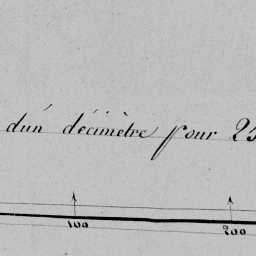 d'un décimètre pour
100 200